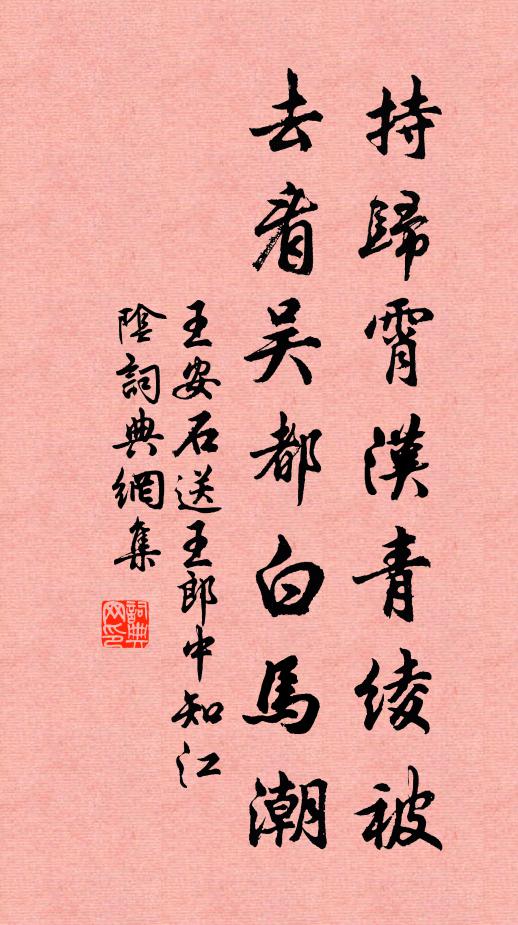 持歸霄漢青綾被
去看吳都白馬潮
王安石送王郎中知江
陰詞典網集
詞典
网印